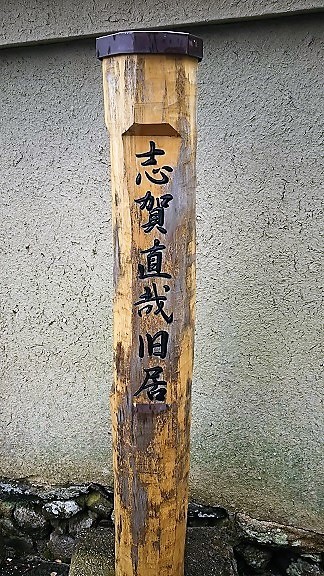 志賀直哉旧居